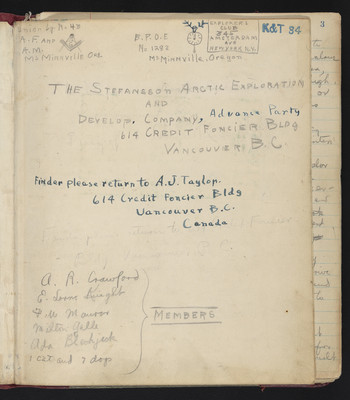 Union N. 40
A.F. AND
A.M.
McMinnville Ore
B.P.O.E
No 1283
McMinnville, Oregon
EXPLORERS
CLUB
AMSTERDAM
AVE
NEW YORK N.Y.
K&T 34
3
THE STEFANSSON ARCTIC EXPLORATION
AND
DEVELOP. COMPANY, Advance Party
614 CREDIT FONCIER BLDG
VANCOUVER, B.C.
Finder please return to A.J. Taylor.
614 Credit Foncier Bldg
Vancouver B.C.
Canada
A. R. Crawford
E. Lorne Knight
F W Maurer
Milton Galle
Ada Blackjack
1 cat and 7 dogs
MEMBERS